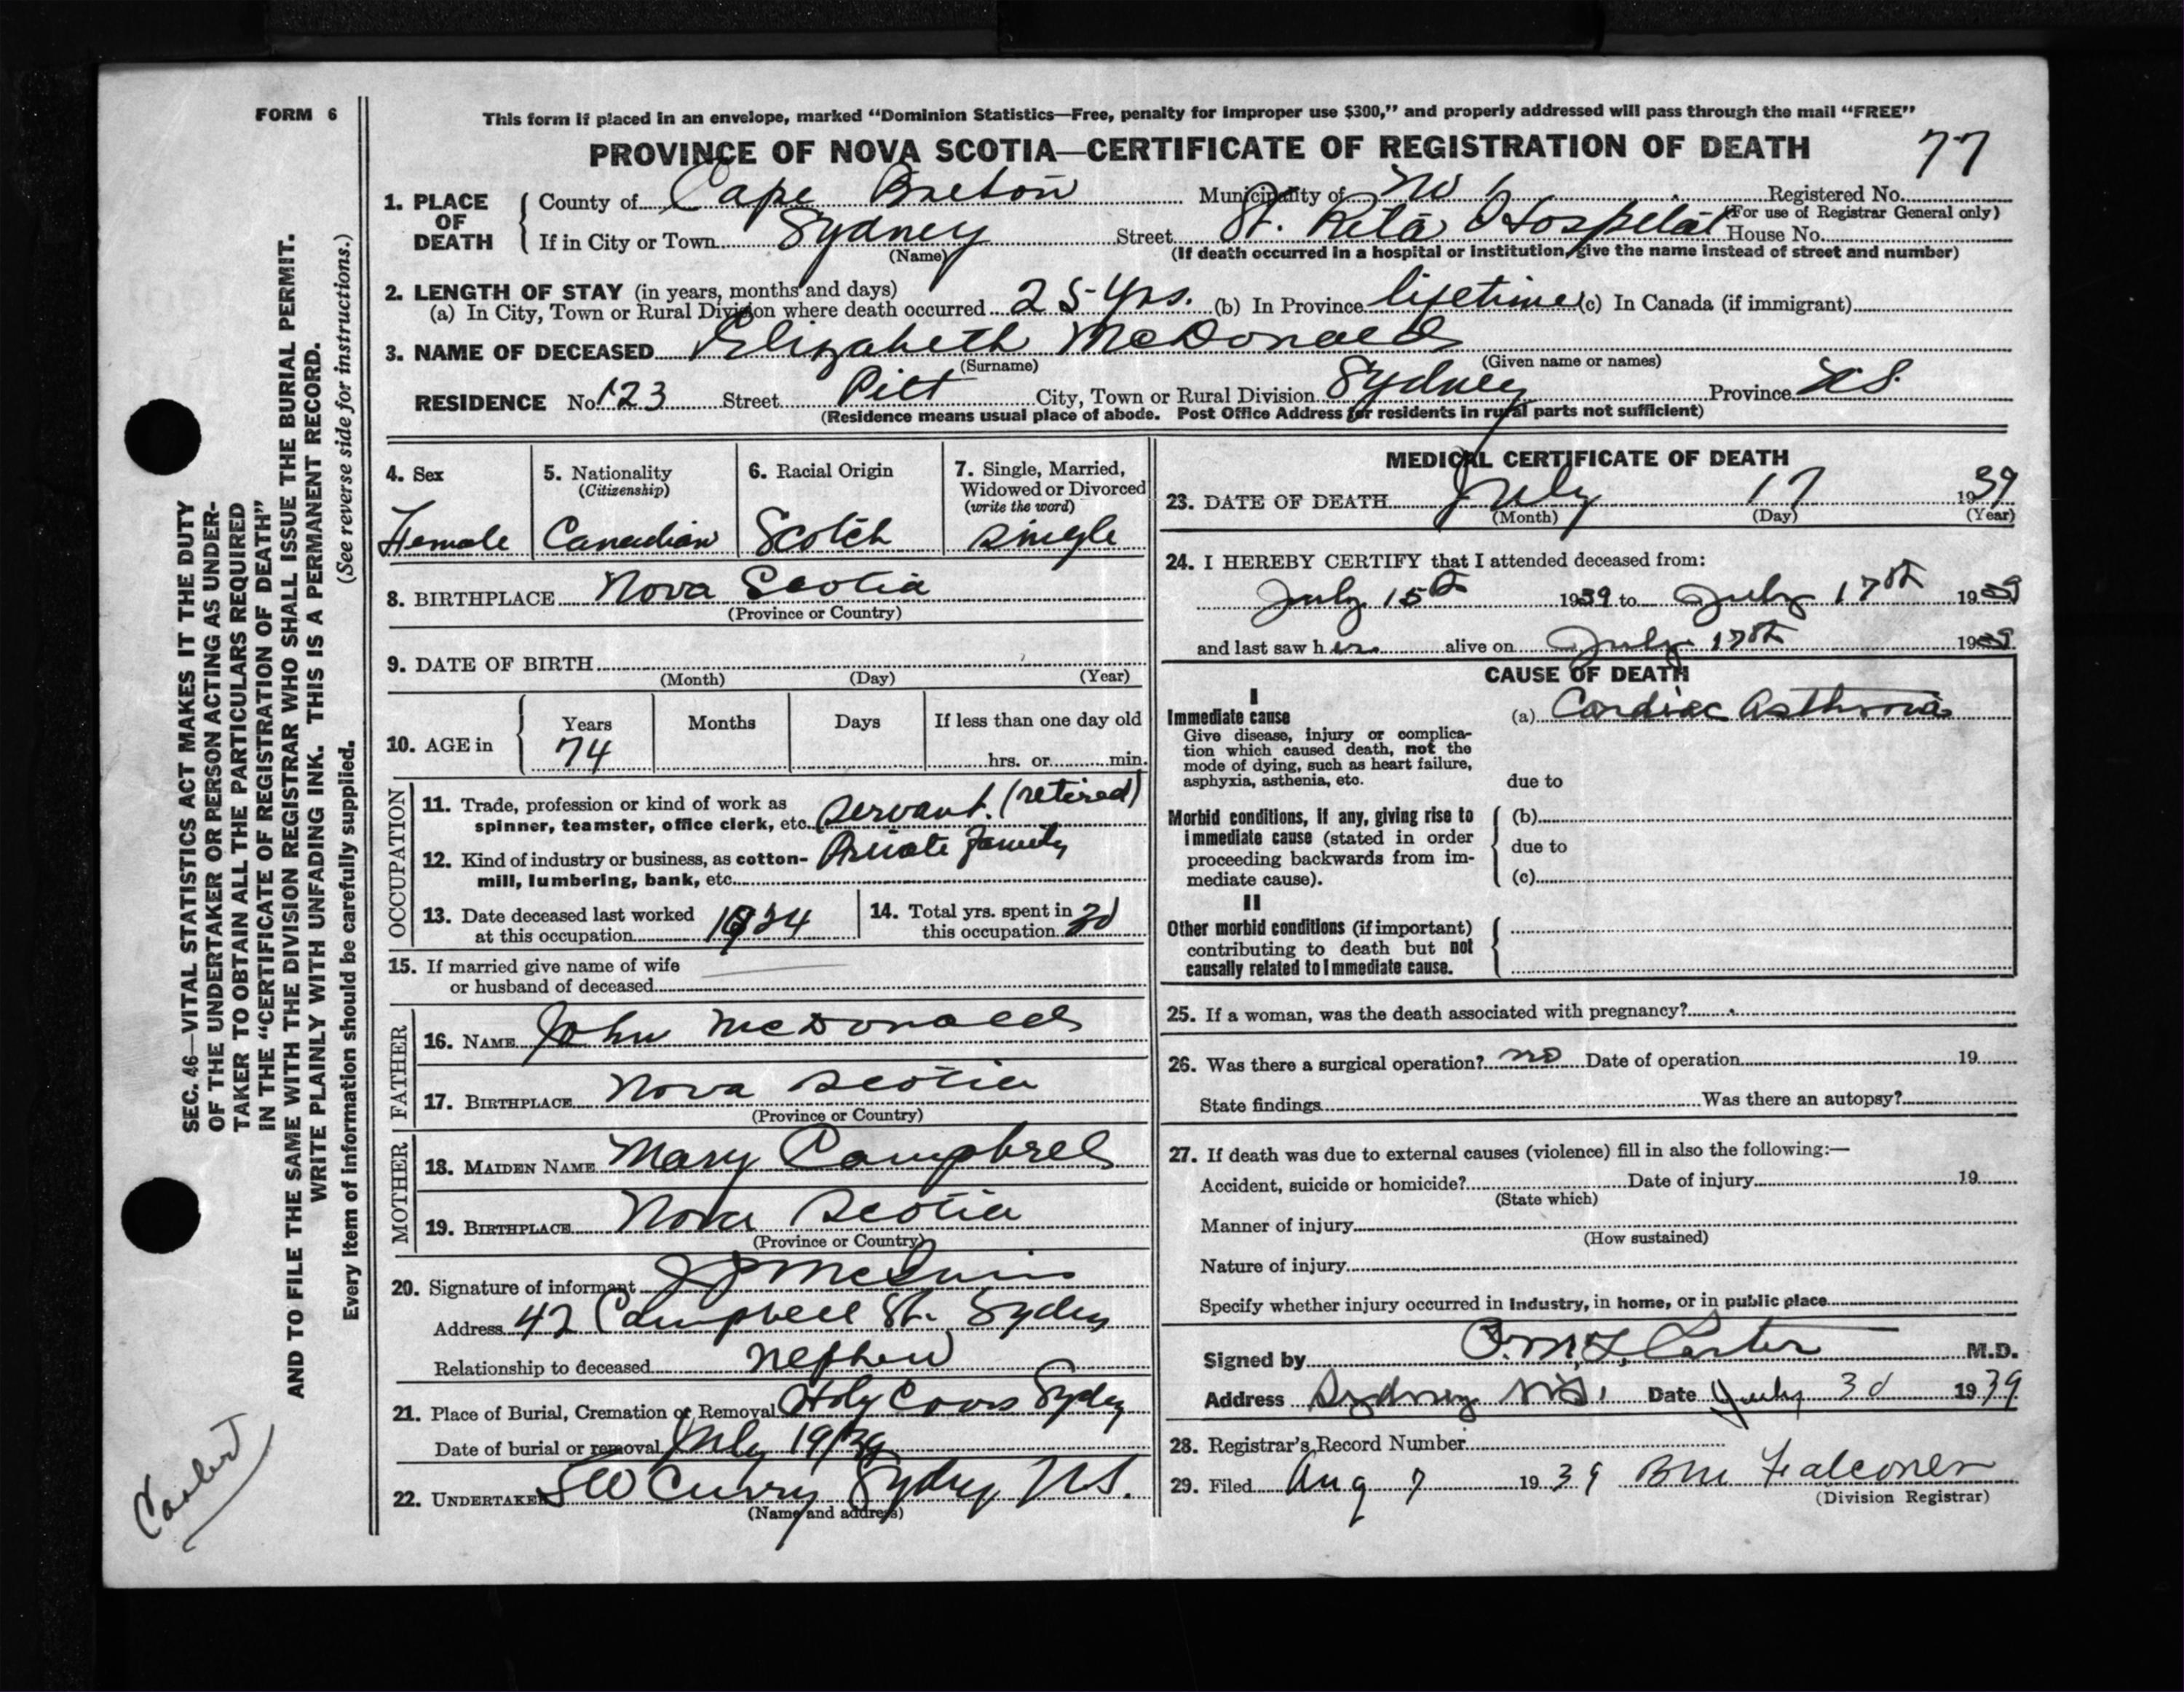 FORM 6
This form if placed in an envelope, marked “Dominion Statistics—Free, penalty for improper use $300,” and properly addressed will pass through the mail “FREE”
PROVINCE OF NOVA SCOTIA—CERTIFICATE OF REGISTRATION OF DEATH 77
1. PLACE OF DEATH
County of Cape Breton Municipality of Registered No.
(For use of Registrar General only)
If in City or Town Sydney Street St. Rita Hospital House No.
(Name) (If death occurred in a hospital or institution, give the name instead of street and number)
2. LENGTH OF STAY (in years, months and days)
(a) In City, Town or Rural Division where death occurred 25 yrs. (b) In Province lifetime (c) In Canada (if immigrant)
3. NAME OF DECEASED Elizabeth McDonald
(Surname) (Given name or names)
RESIDENCE No. 123 Street Pitt City, Town or Rural Division Sydney Province N.S.
(Residence means usual place of abode. Post Office Address for residents in rural parts not sufficient)
4. Sex
Female
5. Nationality
(Citizenship)
Canadian
6. Racial Origin
Scotch
7. Single, Married,
Widowed or Divorced
(write the word)
single
8. BIRTHPLACE Nova Scotia
(Province or Country)
9. DATE OF BIRTH
(Month) (Day) (Year)
10. AGE in Years Months Days If less than one day old
74 hrs. or min.
OCCUPATION
11. Trade, profession or kind of work as
spinner, teamster, office clerk, etc. servant. (retired)
12. Kind of industry or business, as cotton-
mill, lumbering, bank, etc. Private family
13. Date deceased last worked
at this occupation 1924
14. Total yrs. spent in
this occupation 30
15. If married give name of wife
or husband of deceased
FATHER
16. NAME John McDonald
17. BIRTHPLACE Nova Scotia
(Province or Country)
MOTHER
18. MAIDEN NAME Mary Campbell
19. BIRTHPLACE Nova Scotia
(Province or Country)
20. Signature of informant
Address 42 Campbell St. Sydney
Relationship to deceased nephew
21. Place of Burial, Cremation or Removal Holy Cross Sydney
Date of burial or removal July 19/39
22. UNDERTAKER Curry Sydney N.S.
(Name and address)
MEDICAL CERTIFICATE OF DEATH
23. DATE OF DEATH July 17 1939
(Month) (Day) (Year)
24. I HEREBY CERTIFY that I attended deceased from:
July 15th 1939 to July 17th 1939
and last saw her alive on July 17th 1939
CAUSE OF DEATH
I
Immediate cause
Give disease, injury or complica-
tion which caused death, not the
mode of dying, such as heart failure,
asphyxia, asthenia, etc.
(a) Cardiac Asthma
due to
Morbid conditions, if any, giving rise to
immediate cause (stated in order
proceeding backwards from im-
mediate cause).
(b)
due to
(c)
II
Other morbid conditions (if important)
contributing to death but not
causally related to immediate cause.
25. If a woman, was the death associated with pregnancy?
26. Was there a surgical operation? no Date of operation 19
State findings Was there an autopsy?
27. If death was due to external causes (violence) fill in also the following:—
Accident, suicide or homicide? Date of injury 19
(State which)
Manner of injury
(How sustained)
Nature of injury
Specify whether injury occurred in industry, in home, or in public place
Signed by M.D.
Address Sydney N.S. Date July 30 1939
28. Registrar's Record Number
29. Filed Aug 7 1939 Falconer
(Division Registrar)
SEC. 46—VITAL STATISTICS ACT MAKES IT THE DUTY
OF THE UNDERTAKER OR PERSON ACTING AS UNDER-
TAKER TO OBTAIN ALL THE PARTICULARS REQUIRED
IN THE “CERTIFICATE OF REGISTRATION OF DEATH”
AND TO FILE THE SAME WITH THE DIVISION REGISTRAR WHO SHALL ISSUE THE BURIAL PERMIT.
WRITE PLAINLY WITH UNFADING INK. THIS IS A PERMANENT RECORD.
Every item of information should be carefully supplied. (See reverse side for instructions.)